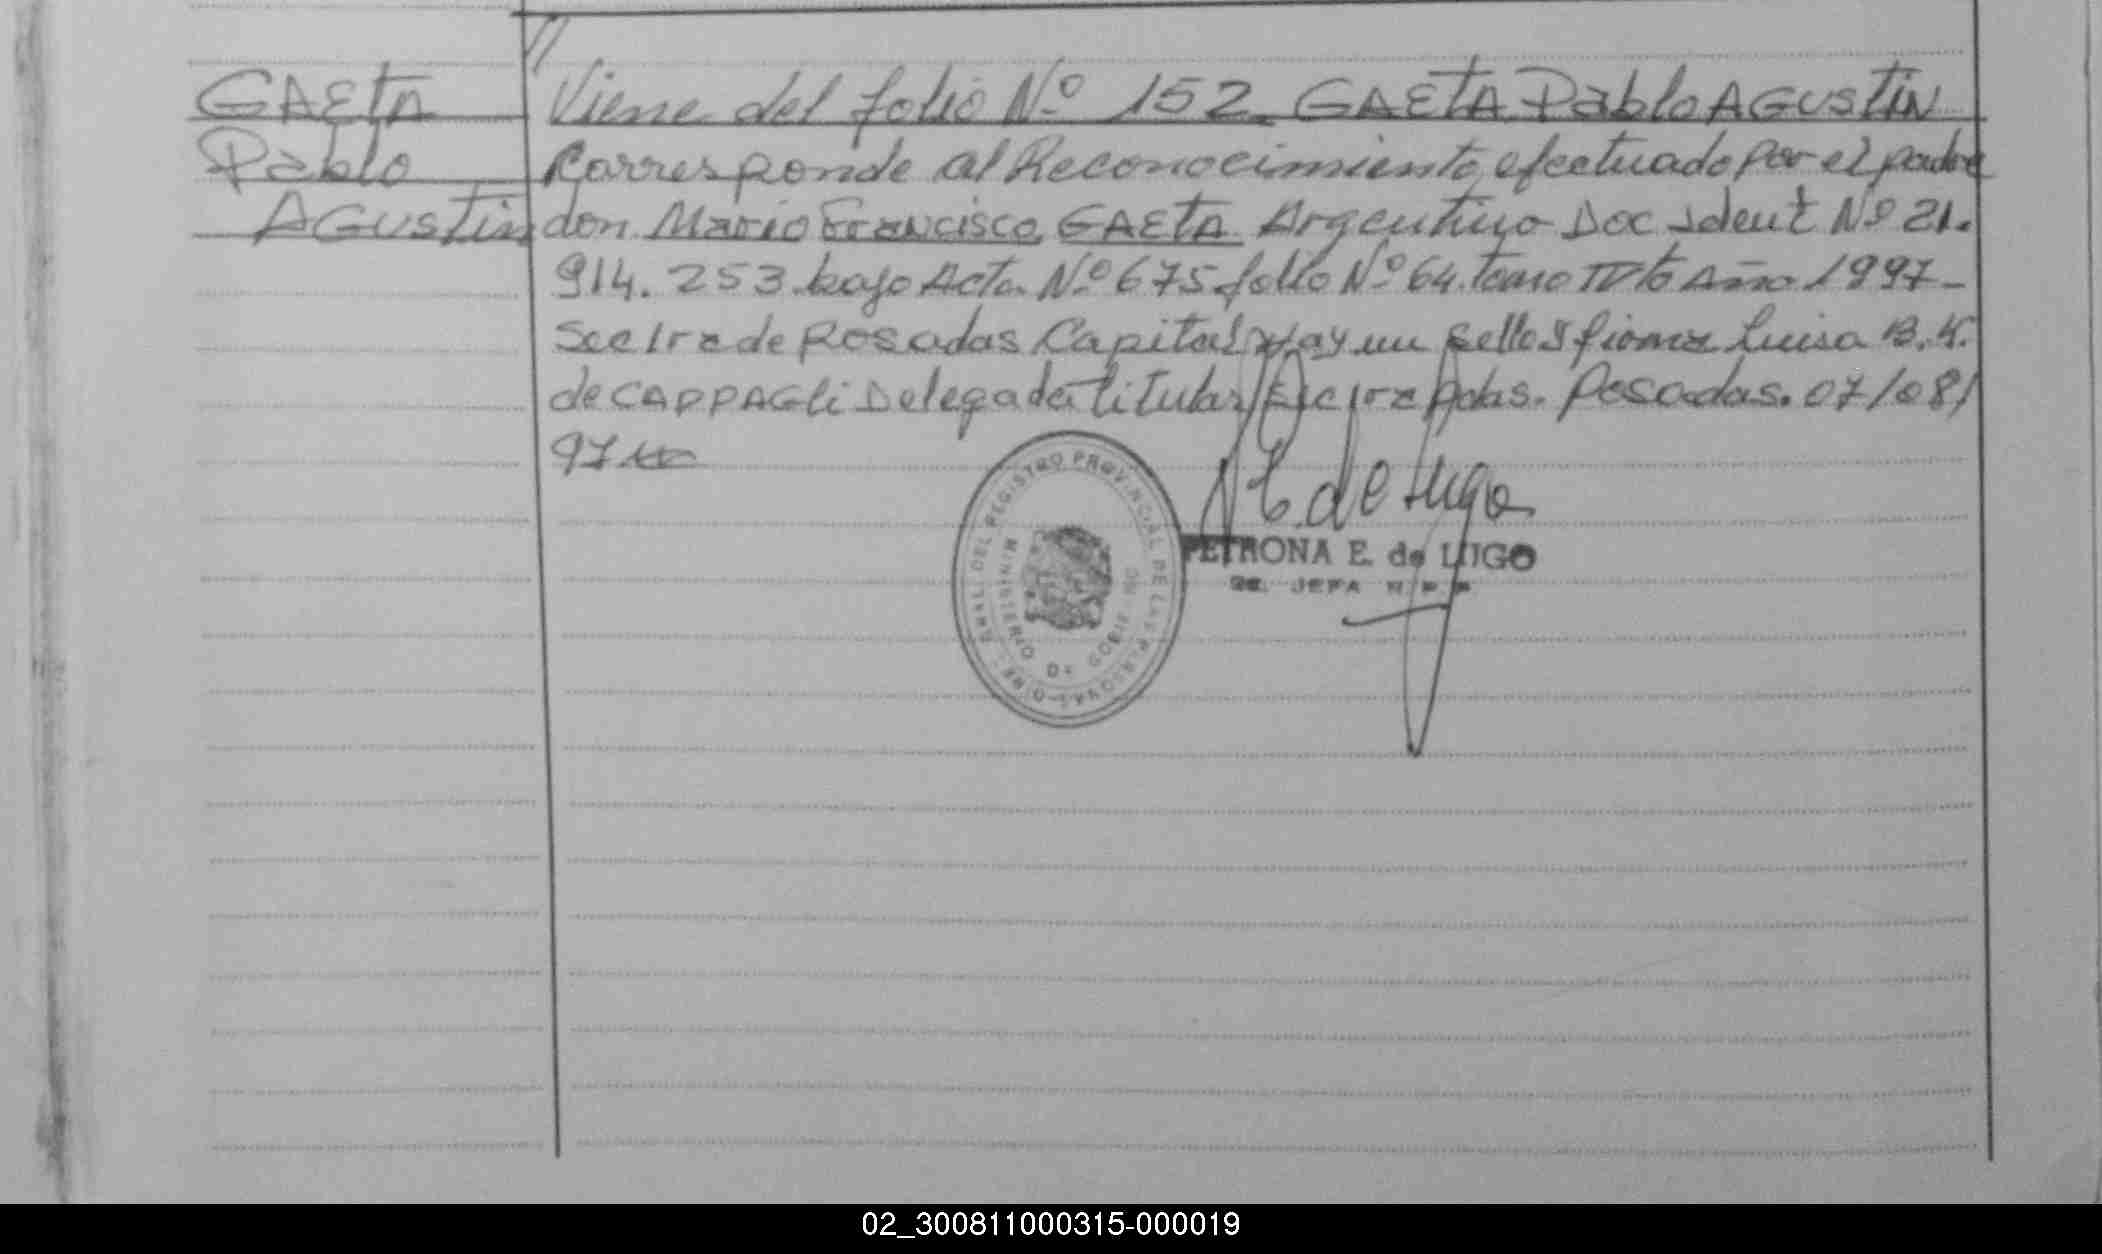 GAETA
Pablo
AGUSTIN
Viene del folio Nº 152. GAETA Pablo AGUSTIN
Corresponde al Reconocimiento efectuado por el padre
don Mario Francisco GAETA Argentino Doc Ident Nº 21.
914.253 bajo Acta Nº 675 folio Nº 64 tomo IV to Año 1997-
Sec 1ra de Posadas Capital Hay un sello y firma Luisa B. K.
de CAPPAGLi Delegada titular Sec 1ra Pdas. Posadas. 07/08/
97
E. de Lugo
PETRONA E. de LUGO
JEFA
GRAL DEL REGISTRO PROVINCIAL DE LAS PERSONAS
MINISTERIO DE GOBIERNO
02_300811000315-000019